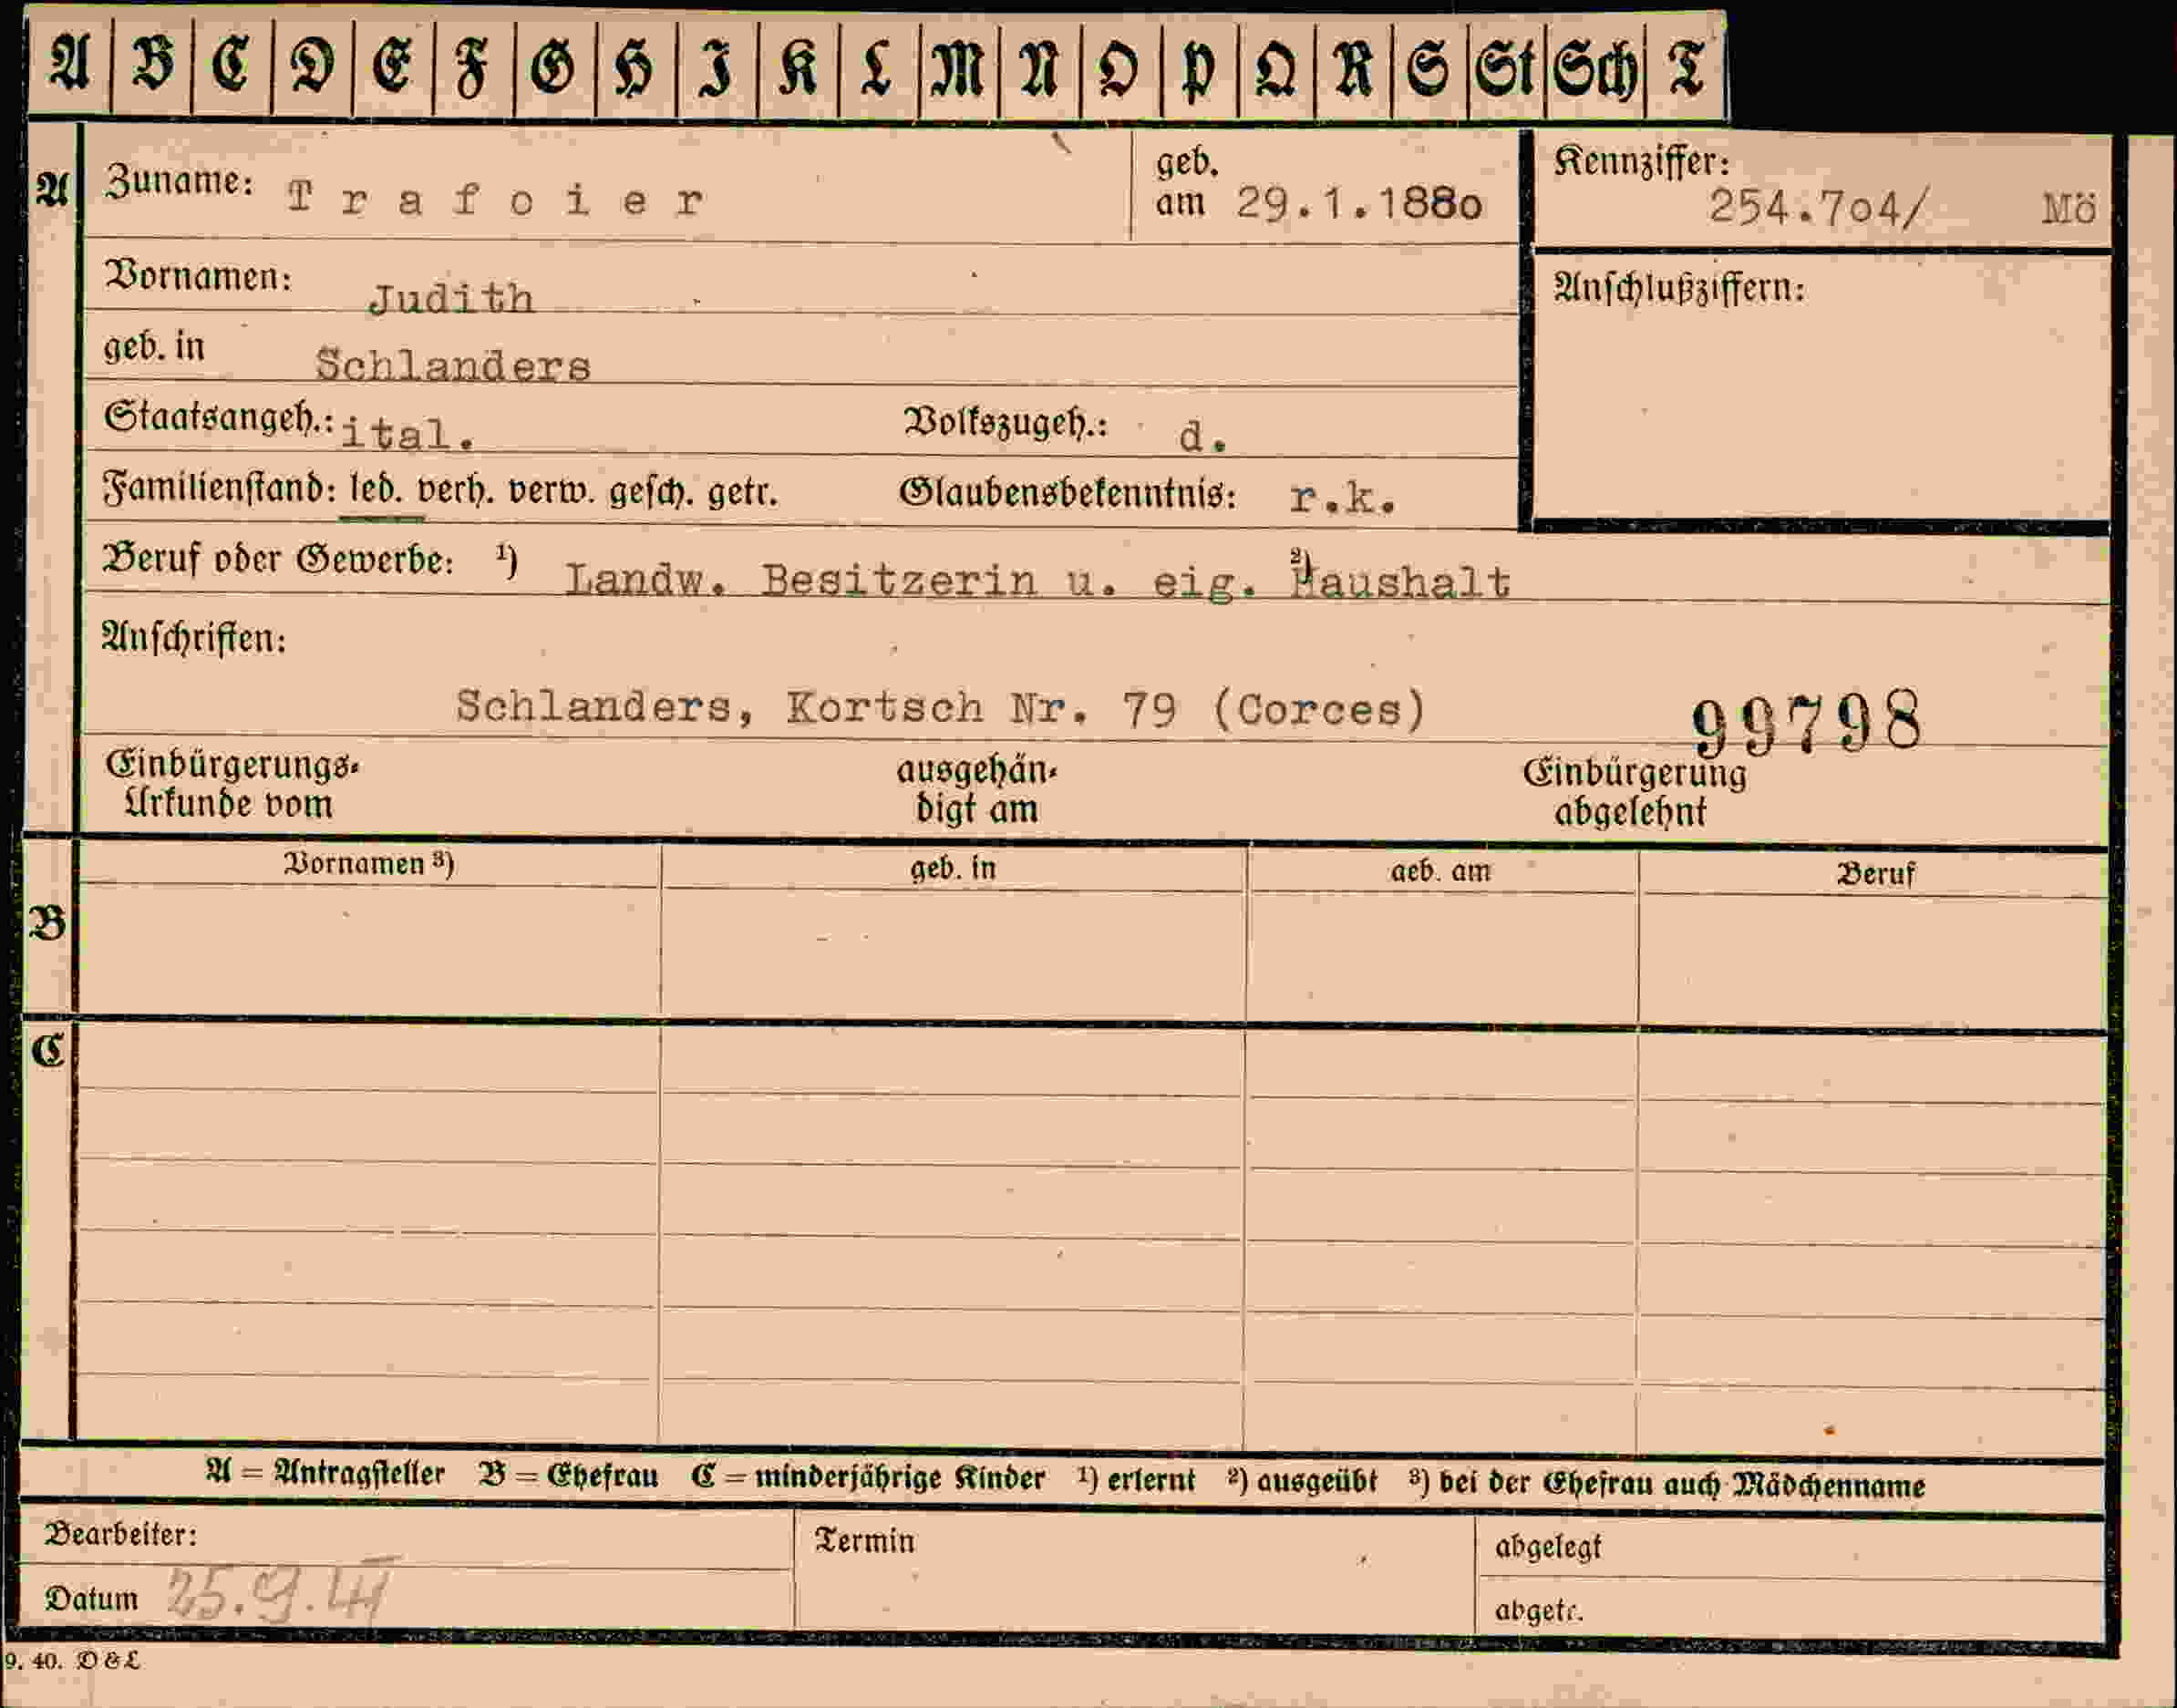 A B C D E F G H I K L M N O P Q R S St Sch T
A Zuname: Trafoier geb. am 29.1.188o Kennziffer: 254.7o4/ Mö
Vornamen: Judith Anschlußziffern:
geb. in Schlanders
Staatsangeh.: ital. Volkszugeh.: d.
Familienstand: led. verh. verw. gesch. getr. Glaubensbekenntnis: r.k.
Beruf oder Gewerbe: ¹) Landw. Besitzerin u. eig. ²) Haushalt
Anschriften:
Schlanders, Kortsch Nr. 79 (Corces) 99798
Einbürgerungs- ausgehän- Einbürgerung
Urkunde vom digt am abgelehnt
Vornamen ³) geb. in geb. am Beruf
B
C
A = Antragsteller B = Ehefrau C = minderjährige Kinder ¹) erlernt ²) ausgeübt ³) bei der Ehefrau auch Mädchenname
Bearbeiter: Termin abgelegt
Datum 25.9. abgetr.
9. 40. D & L